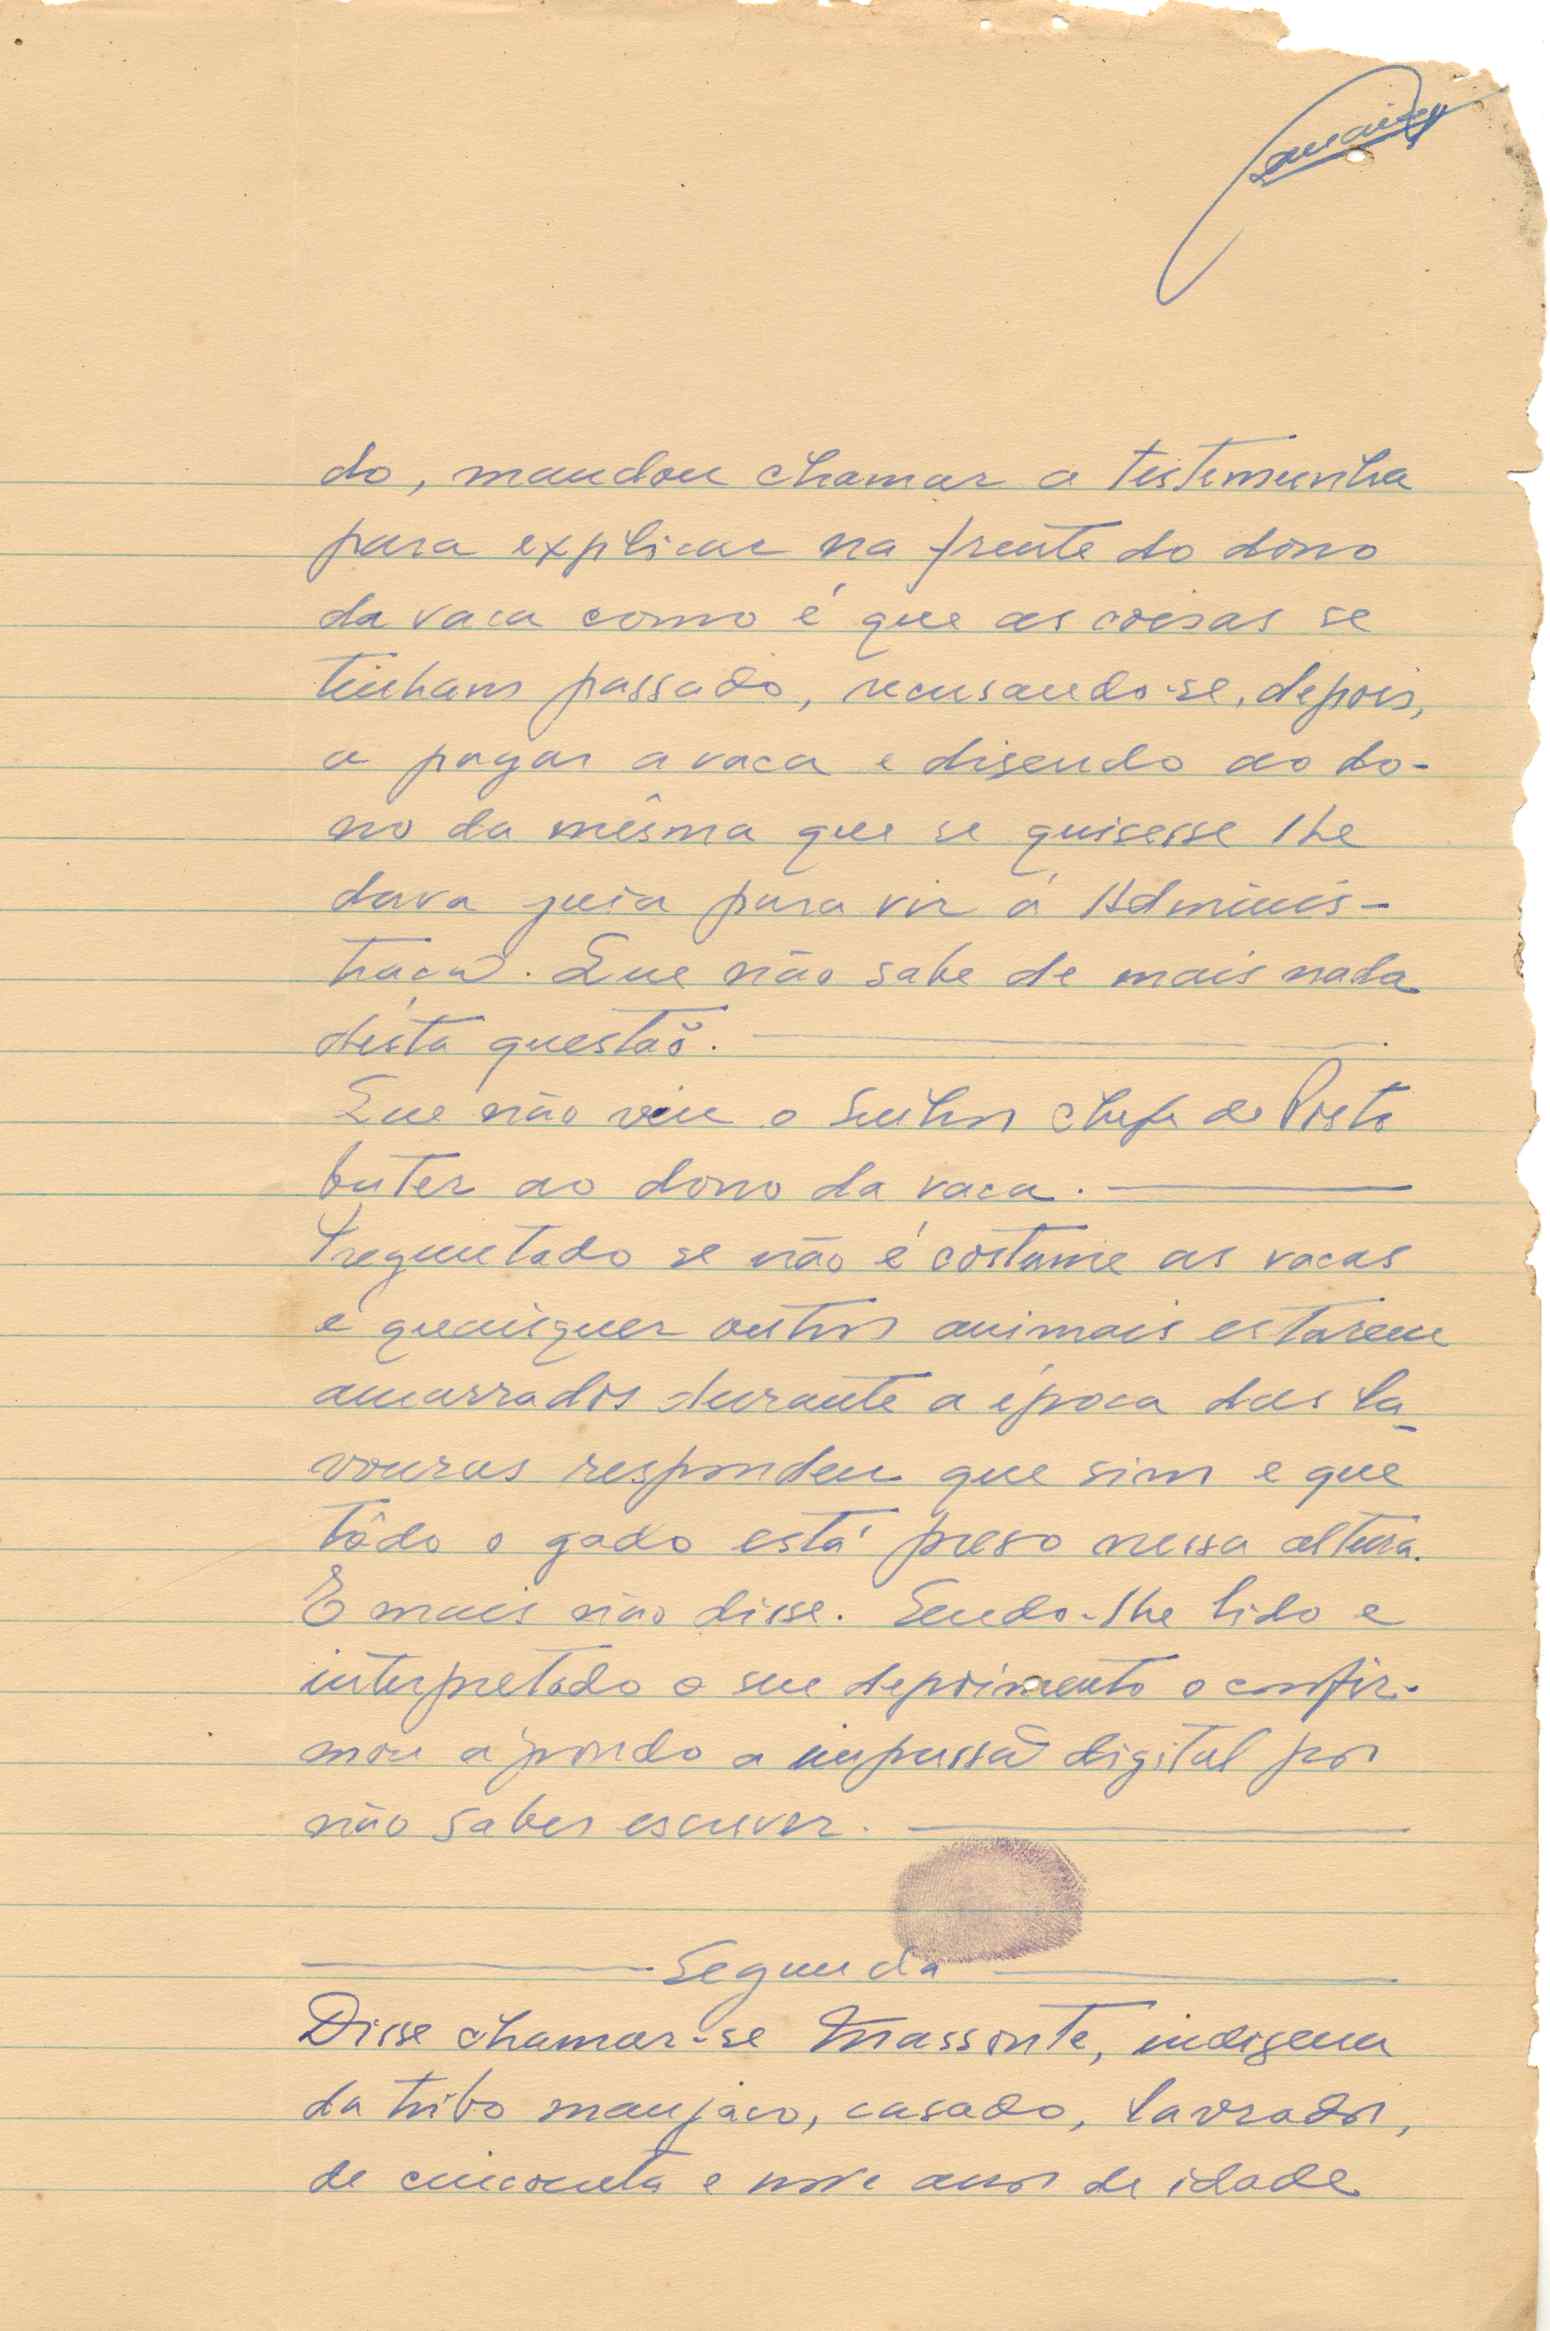 do, mandou chamar a testemunha
para explicar na frente do dono
da vaca como é que as coisas se
tinham passado, recusando-se, depois,
a pagar a vaca e disendo ao do-
no da mêsma que se quisesse lhe
dava guia para vir á Adminis-
tração. Que não sabe de mais nada
désta questão.
Que não viu o Senhor Chefe de Posto
bater ao dono da vaca.
Preguntado se não é costume as vacas
e quaisquer outros animais estarem
amarrados durante a época das la-
vouras respondeu que sim e que
tôdo o gado está preso nessa altura.
E mais não disse. Sendo-lhe lido e
interpretado o seu depoimento o confir-
mou apondo a impressão digital por
não saber escrever.
Segunda
Disse chamar-se Massonte, indigena
da tribo manjaco, casado, lavrador,
de cincoenta e nove anos de idade